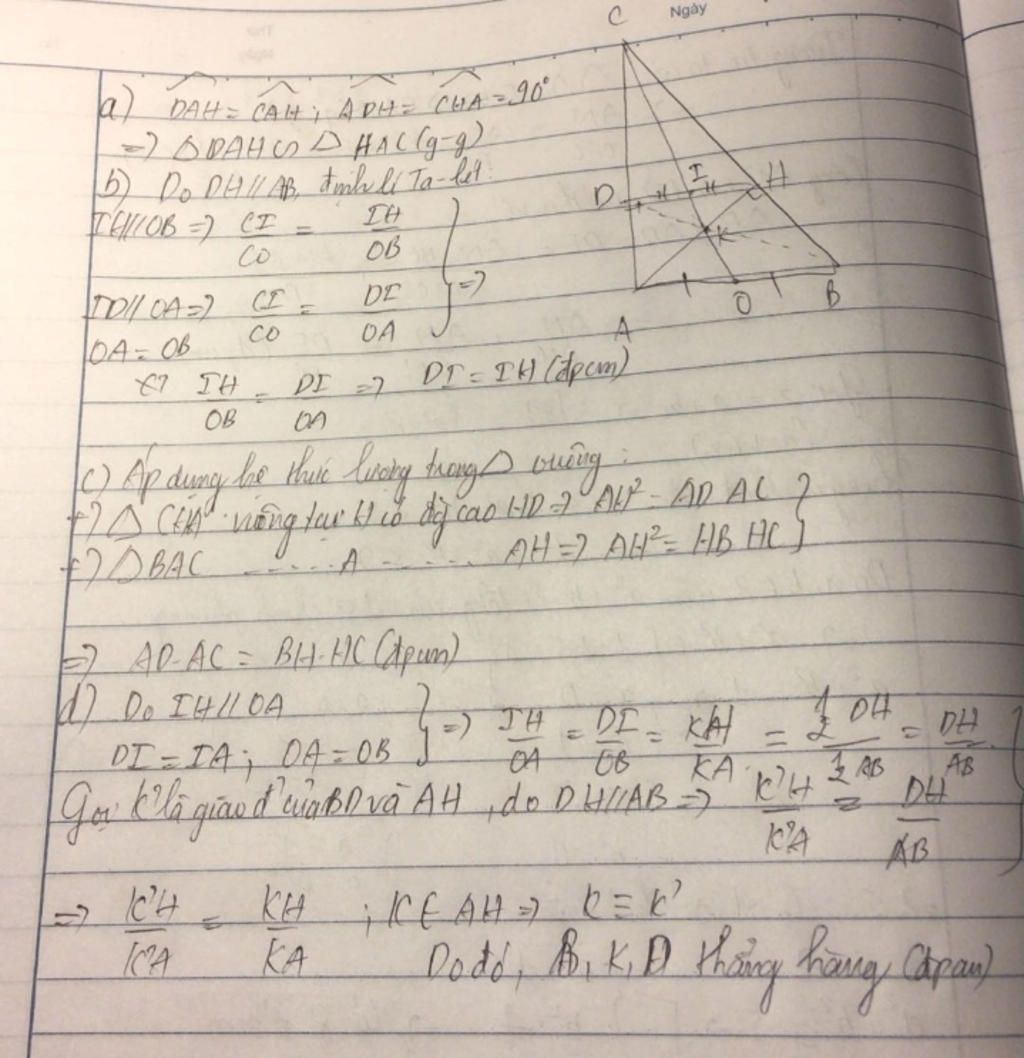 Ngày
C
a) DAH = CAH ; ADH = CHA = 90°
=> △DAH ∽ △HAC (g-g)
b) Do DH // AB, định lí Ta-let:
IH // OB => CI/CO = IH/OB
ID // OA => CI/CO = DI/OA
OA = OB
} =>
D I H
K
A O B
IH/OB = DI/OA => DI = IH (đpcm)
c) Áp dụng hệ thức lượng trong △ vuông:
+) △CHA vuông tại H có đg cao HD => AH² = AD.AC
+) △BAC ........ A ........ AH => AH² = HB.HC
=> AD.AC = BH.HC (đpcm)
d) Do IH // OA
DI = IA ; OA = OB
} => IH/OA = DI/OB = KH/KA = ½DH/½AB = DH/AB
Gọi K' là giao đ' của BD và AH, do DH // AB => K'H/K'A = DH/AB
=> K'H/K'A = KH/KA ; K ∈ AH => K ≡ K'
Do đó, B, K, D thẳng hàng (đpcm)